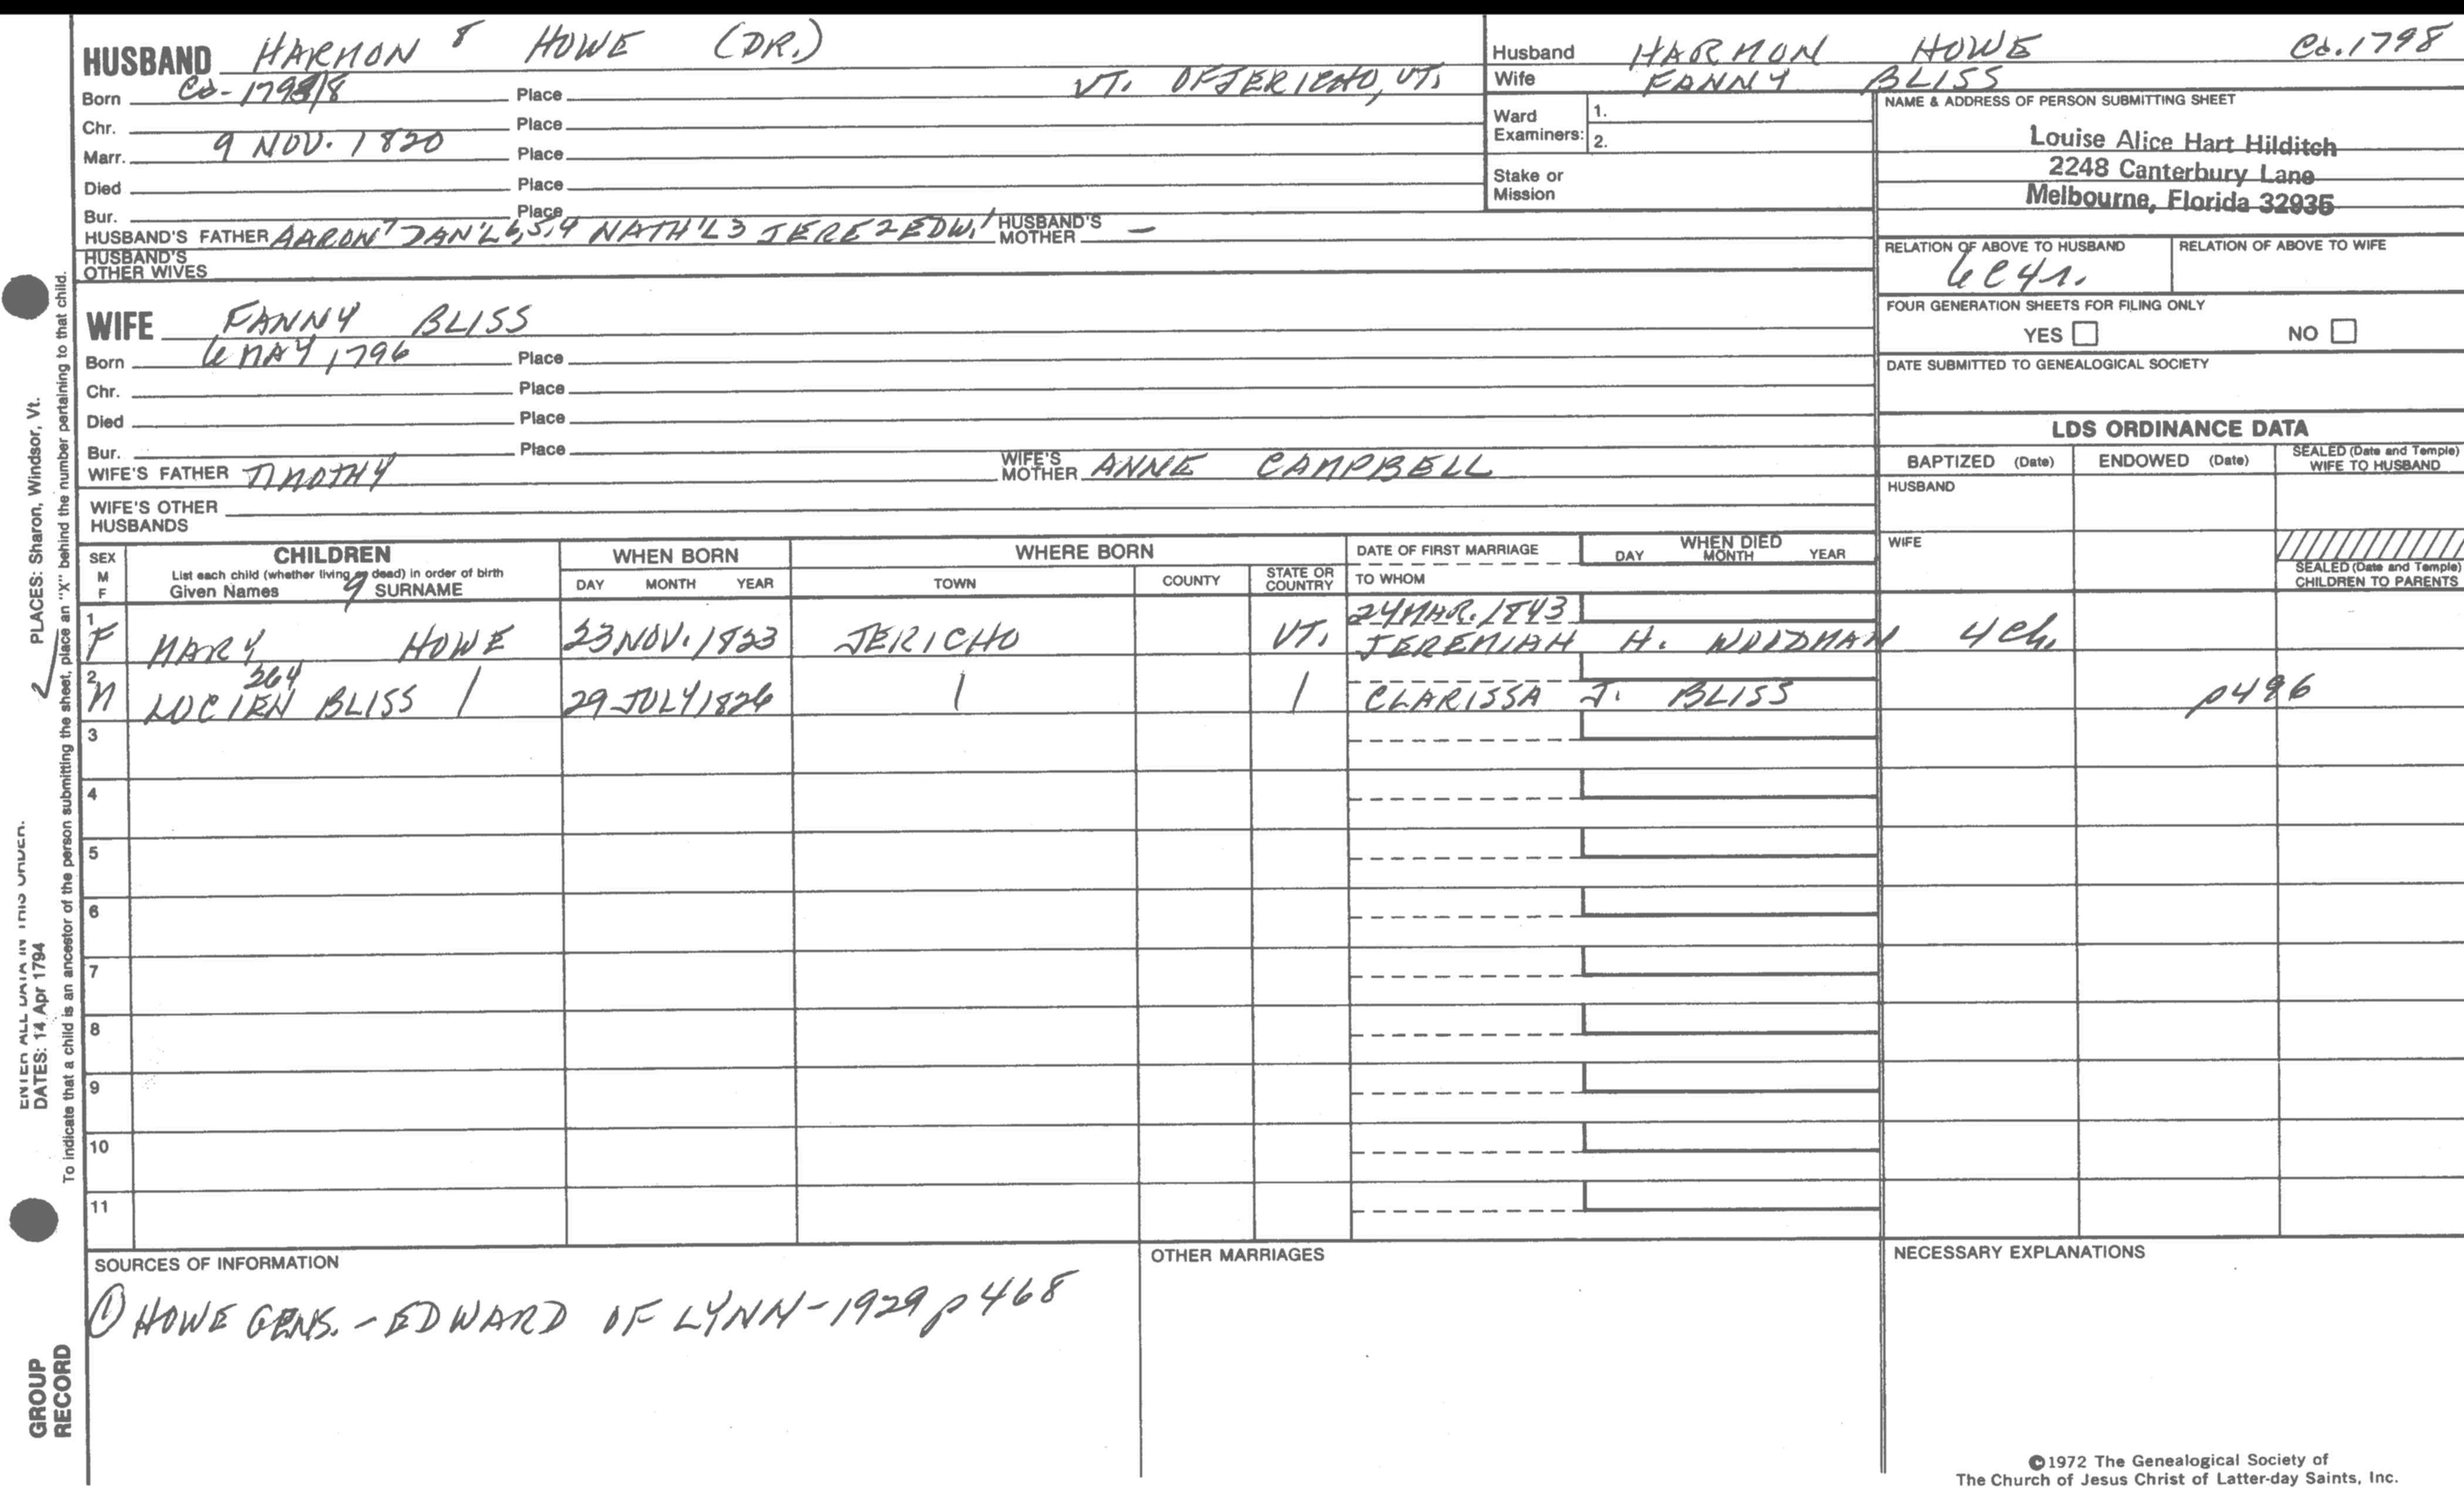 HUSBAND HARMON 8 HOWE (DR.)
Born Ca- 1798/8 Place VT. OF JERICHO, VT.
Chr. Place
Marr. 9 NOV. 1820 Place
Died Place
Bur. Place
HUSBAND'S FATHER AARON 7 DAN'L 6,5,4 NATH'L 3 JERE 2 EDW. 1 HUSBAND'S MOTHER —
HUSBAND'S OTHER WIVES
WIFE FANNY BLISS
Born 6 MAY 1796 Place
Chr. Place
Died Place
Bur. Place
WIFE'S FATHER TIMOTHY WIFE'S MOTHER ANNE CAMPBELL
WIFE'S OTHER HUSBANDS
Husband HARMON HOWE Ca. 1798
Wife FANNY BLISS
Ward Examiners: 1.
2.
Stake or Mission
NAME & ADDRESS OF PERSON SUBMITTING SHEET
Louise Alice Hart Hilditch
2248 Canterbury Lane
Melbourne, Florida 32935
RELATION OF ABOVE TO HUSBAND RELATION OF ABOVE TO WIFE
6C4r.
FOUR GENERATION SHEETS FOR FILING ONLY
YES NO
DATE SUBMITTED TO GENEALOGICAL SOCIETY
LDS ORDINANCE DATA
BAPTIZED (Date) ENDOWED (Date) SEALED (Date and Temple) WIFE TO HUSBAND
HUSBAND
WIFE
SEALED (Date and Temple) CHILDREN TO PARENTS
SEX M F
CHILDREN
List each child (whether living or dead) in order of birth
Given Names 9 SURNAME
WHEN BORN
DAY MONTH YEAR
WHERE BORN
TOWN COUNTY STATE OR COUNTRY
DATE OF FIRST MARRIAGE
TO WHOM
WHEN DIED
DAY MONTH YEAR
24 MAR. 1843
1 F MARY HOWE 23 NOV. 1823 JERICHO VT. JEREMIAH H. WOODMAN 4 Ch.
264
2 M LUCIEN BLISS | 29 JULY 1826 | | CLARISSA J. BLISS p496
3
4
5
6
7
8
9
10
11
SOURCES OF INFORMATION
① HOWE GENS. - EDWARD OF LYNN - 1929 p 468
OTHER MARRIAGES
NECESSARY EXPLANATIONS
©1972 The Genealogical Society of
The Church of Jesus Christ of Latter-day Saints, Inc.
PLACES: Sharon, Windsor, Vt.
ENTER ALL DATA IN THIS ORDER.
DATES: 14 Apr 1794
To indicate that a child is an ancestor of the person submitting the sheet, place an "X" behind the number pertaining to that child.
2
GROUP
RECORD